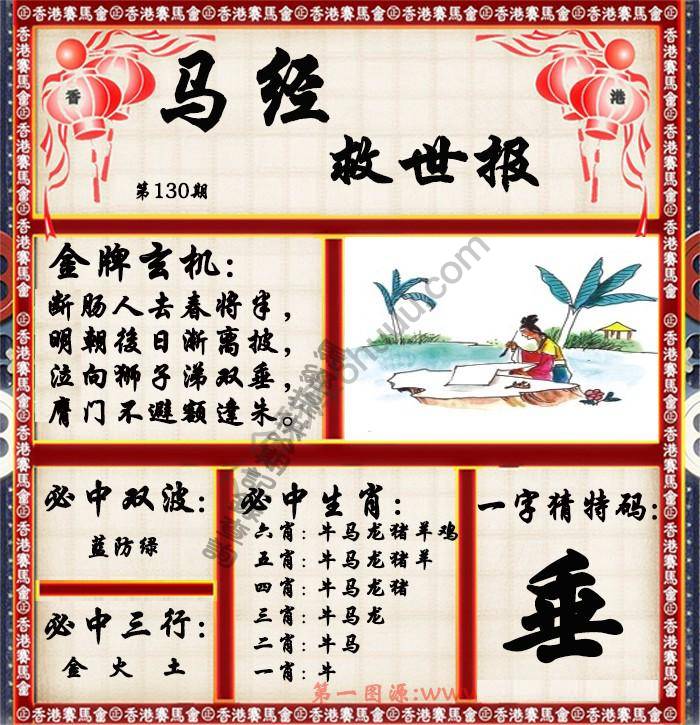 香港賽馬會
香 港
马经
救世报
第130期
金牌玄机：
断肠人去春将半，
明朝後日渐离披，
泣向狮子涕双垂，
膺门不避额逢朱。
必中双波：
蓝防绿
必中三行：
金 火 土
必中生肖：
六肖：牛马龙猪羊鸡
五肖：牛马龙猪羊
四肖：牛马龙猪
三肖：牛马龙
二肖：牛马
一肖：牛
一字猜特码：
垂
第一图源:www